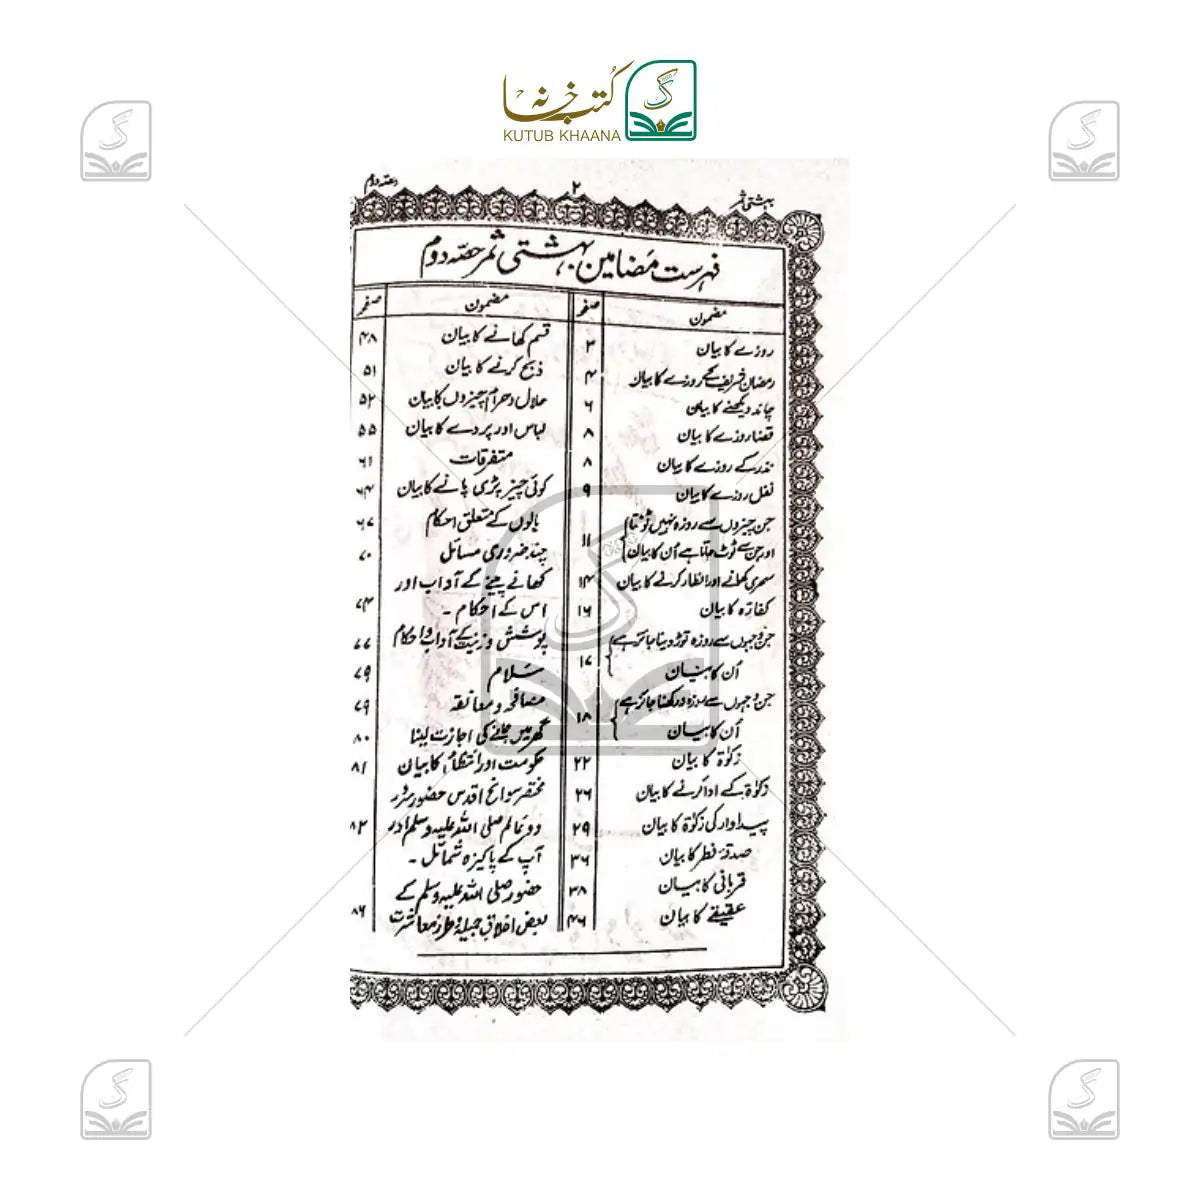 کتب خانہ
KUTUB KHAANA
بہشتی ثمر
۲
حصّہ دوم
فہرست مضامین بہشتی ثمر حصّہ دوم
مضمون
صفحہ
روزے کا بیان ۳
رمضان شریف کے روزے کا بیان ۴
چاند دیکھنے کا بیان ۶
قضا روزے کا بیان ۸
نذر کے روزے کا بیان ۸
نفل روزے کا بیان ۹
جن چیزوں سے روزہ نہیں ٹوٹتا
اور جن سے ٹوٹ جاتا ہے اُن کا بیان ۱۱
سحری کھانے اور افطار کرنے کا بیان ۱۴
کفارہ کا بیان ۱۶
جن وجہوں سے روزہ توڑ دینا جائز ہے
اُن کا بیان ۱۷
جن وجہوں سے روزہ نہ رکھنا جائز ہے
اُن کا بیان ۱۸
زکوٰۃ کا بیان ۲۲
زکوٰۃ کے ادا کرنے کا بیان ۲۶
پیداوار کی زکوٰۃ کا بیان ۲۹
صدقۂ فطر کا بیان ۳۶
قربانی کا بیان ۳۸
عقیقے کا بیان ۴۶
مضمون
صفحہ
قسم کھانے کا بیان ۴۸
ذبح کرنے کا بیان ۵۱
حلال و حرام چیزوں کا بیان ۵۲
لباس اور پردے کا بیان ۵۵
متفرقات ۶۱
کوئی چیز پڑی پانے کا بیان ۶۴
بالوں کے متعلق احکام ۶۷
چند ضروری مسائل ۷۰
کھانے پینے کے آداب اور
اس کے احکام - ۷۴
پوشش و زینت کے آداب و احکام ۷۷
سلام ۷۹
مصافحہ و معانقہ ۷۹
گھر میں جانے کی اجازت لینا ۸۰
حکومت اور انتظام کا بیان ۸۱
مختصر سوانح اقدس حضور سرور
دو عالم صلی اللہ علیہ وسلم اور ۸۲
آپ کے پاکیزہ شمائل -
حضور صلی اللہ علیہ وسلم کے
بعض اخلاق جمیلہ و طرز معاشرت ۸۶